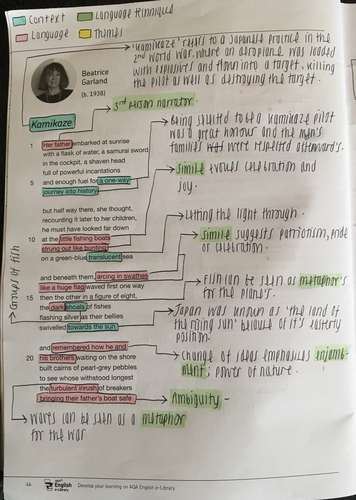 Context
Language technique
Language
Themes
"Kamikaze" refers to a Japanese practice in the
2nd World war, where an aeroplane was loaded
with explosives and flown into a target, killing
the pilot as well as destroying the target.
Beatrice
Garland
(b. 1938)
3rd person narrator.
Kamikaze
Being selected to be a kamikaze pilot
was a great honour and the man's
families were respected afterwards.
1 Her father embarked at sunrise
with a flask of water, a samurai sword
in the cockpit, a shaven head
full of powerful incantations
5 and enough fuel for a one-way
journey into history
simile evokes celebration and
joy.
but half way there, she thought,
recounting it later to her children,
he must have looked far down
10 at the little fishing boats
strung out like bunting
on a green-blue translucent sea
Letting the light through.
simile suggests patriotism, pride
or celebration.
and beneath them, arcing in swathes
like a huge flag waved first one way
15 then the other in a figure of eight,
the dark shoals of fishes
flashing silver as their bellies
swivelled towards the sun
Groups of fish
Fish can be seen as metaphor's
for the planes.
Japan was known as 'the land of
the rising sun' because of it's easterly
position.
and remembered how he and
20 his brothers waiting on the shore
built cairns of pearl-grey pebbles
to see whose withstood longest
the turbulent inrush of breakers
bringing their father's boat safe
Change of ideas emphasises enjamb-
ment; power of nature.
Ambiguity -
Waves can be seen as a metaphor
for the war
46
English
e-Library
Develop your learning on AQA English e-Library